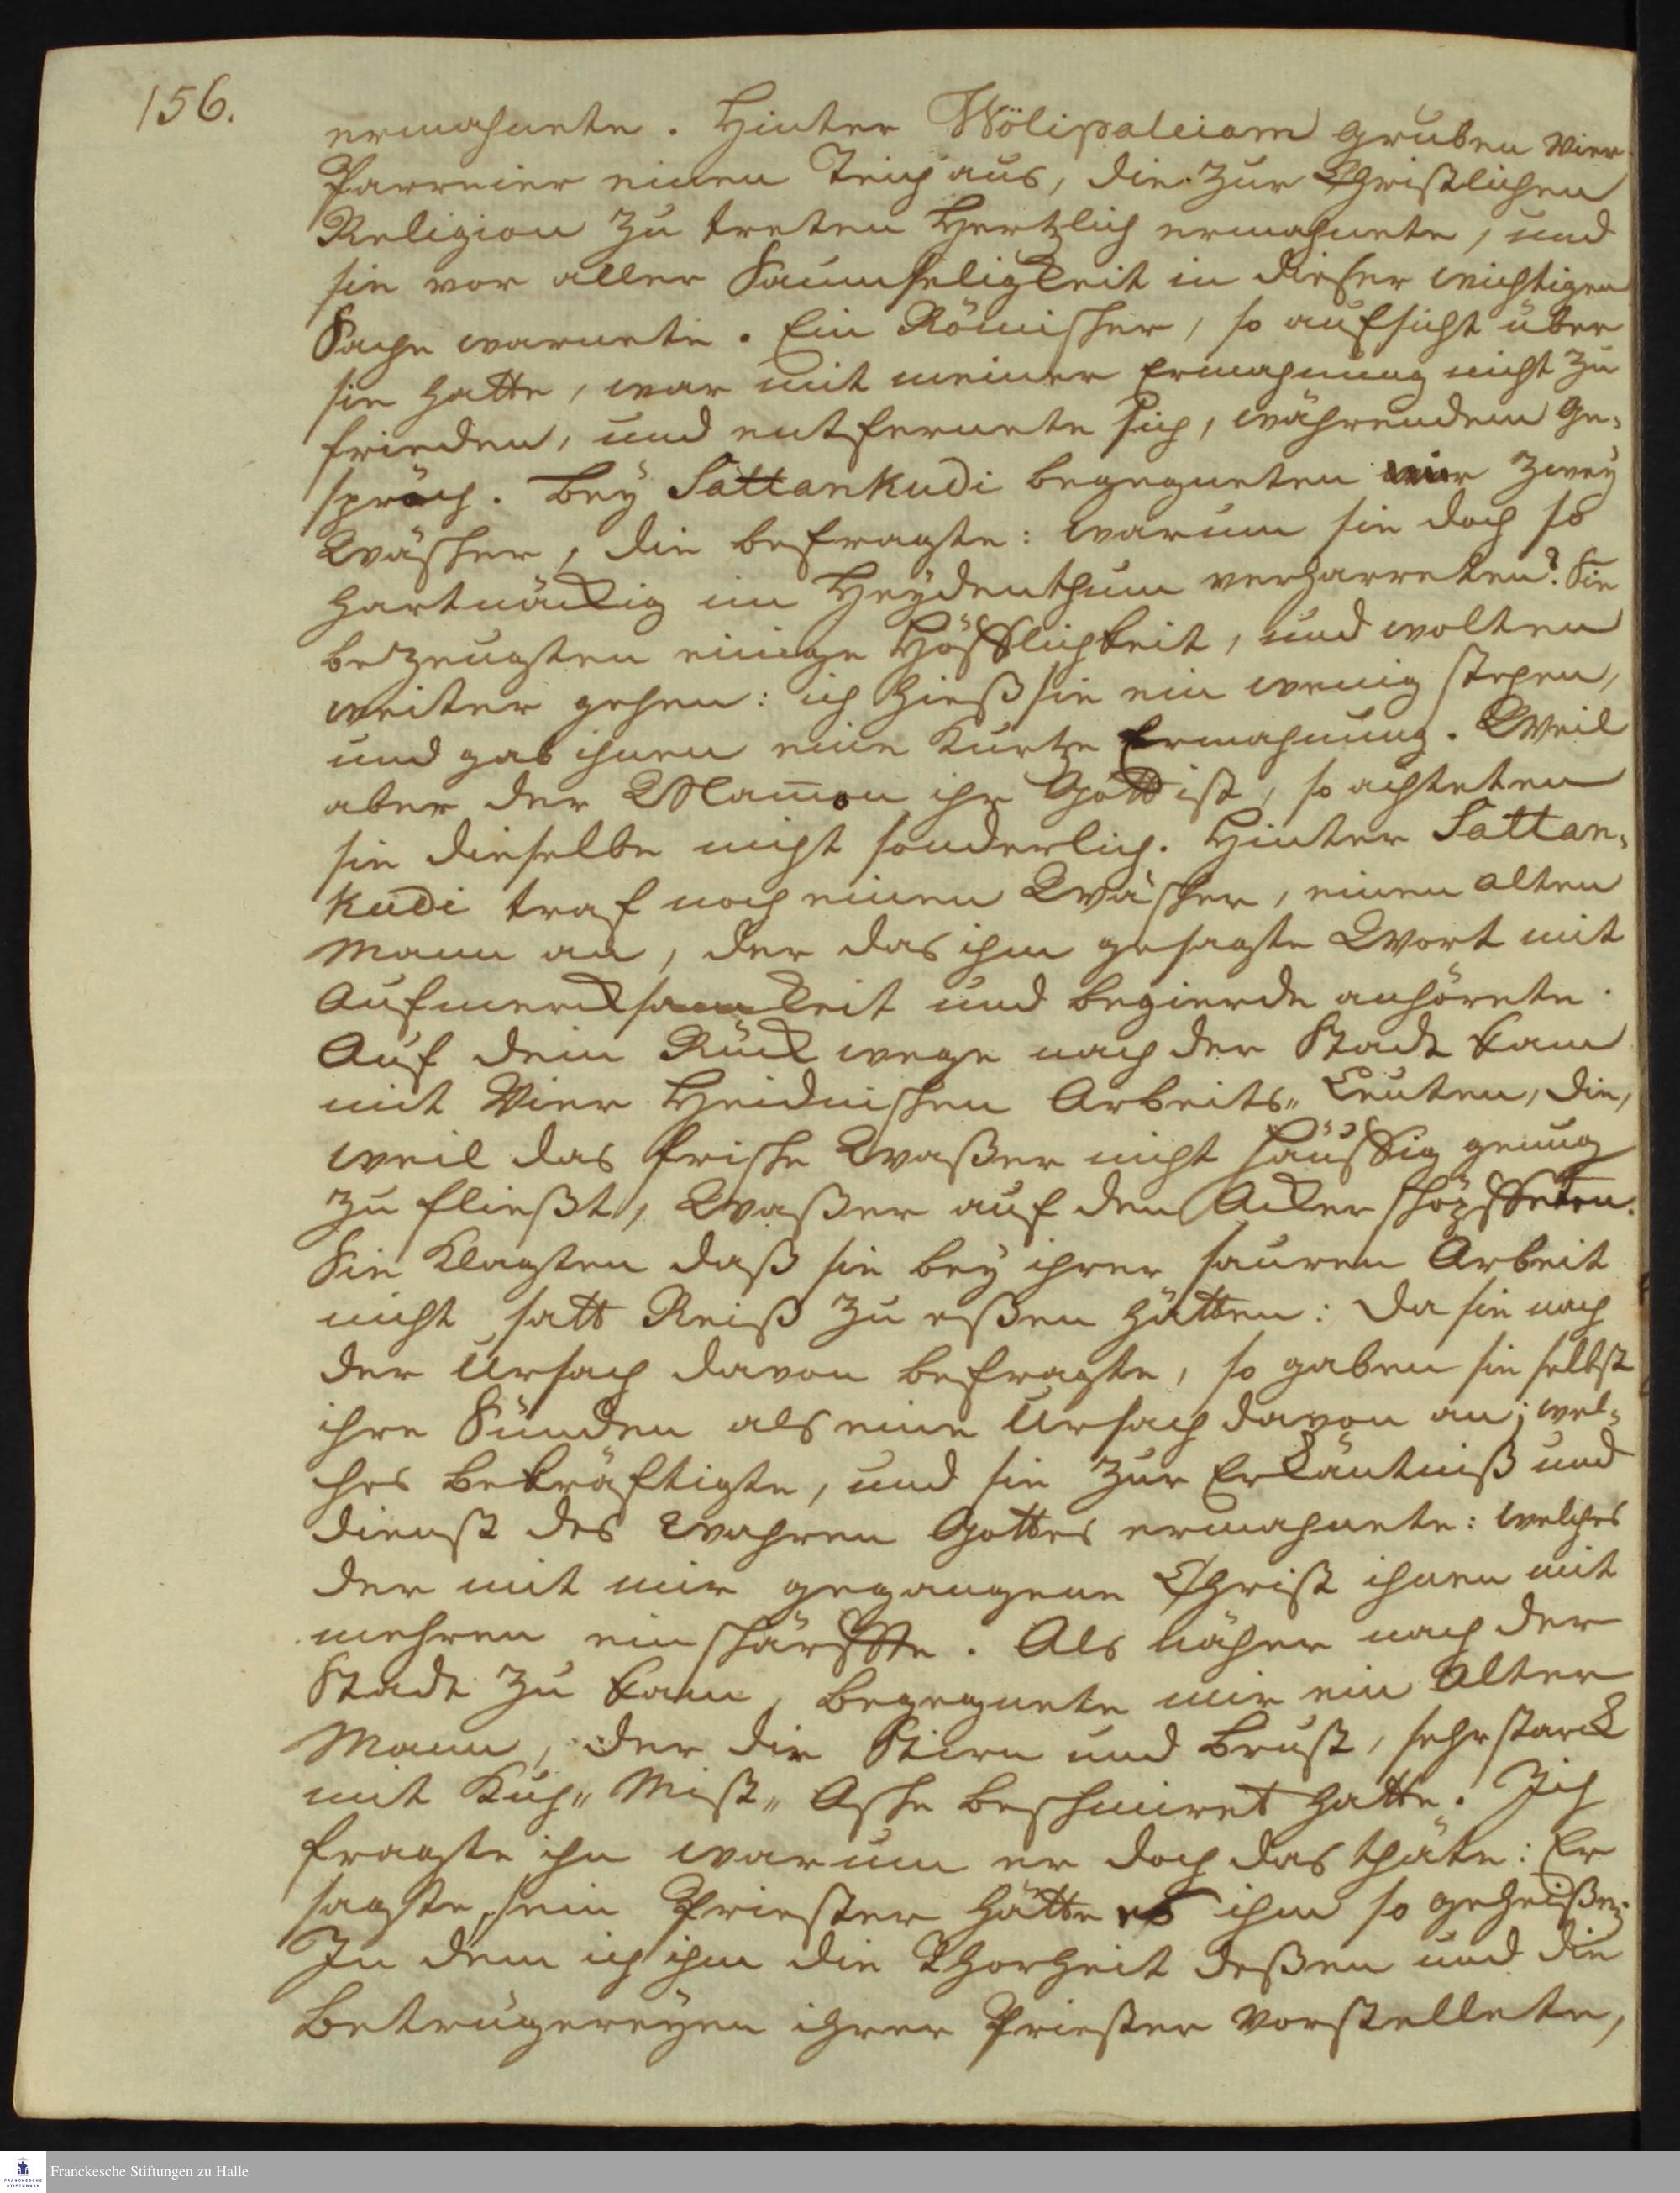 156.
ermahnete. Hinter Wölipaleiam gruben vier
Parreier einen Teich aus, die zur Christlichen
Religion zu treten Hertzlich ermahnete, und
sie vor aller Saumseligkeit in dieser wichtigen
Sache warnete. Ein Römischer, so aufsicht über
sie hatte, war mit meiner Ermahnung nicht zu
frieden, und entfernete sich, währendem Ge-
spräch. Bey Sattankudi begegneten mir zwey
Wäscher, die befragte: warum sie doch so
hartnäckig im Heydenthum verharreten? Sie
bezeugten einige Höfflichkeit, und wolten
weiter gehen: ich hieß sie ein wenig stehen,
und gab ihnen eine Kurtze Ermahnung. Weil
aber der Mam̄on ihr Gott ist, so achteten
sie dieselbe nicht sonderlich. Hinter Sattan-
kudi traf noch einen Wäscher, einen alten
Mann an, der das ihm gesagte Wort mit
Aufmercksamkeit und begierde anhörete.
Auf dem Rück wege nach der Stadt kam
mit Vier Heidnischen Arbeits„ Leuten, die,
weil das frische Waßer nicht häuffig genug
zu fließt, Waßer auf den Acker schöpffeten.
Sie Klagten daß sie bey ihrer sauren Arbeit
nicht satt Reiß zu eßen hätten: Da sie nach
der Ursach davon befragte, so gaben sie selbst
ihre Sünden als eine Ursach davon an; wel-
ches bekräftigte, und sie zur Erkäntniß und
dienst des wahren Gottes ermahnete: welches
der mit mir gegangene Christ ihnen mit
mehren ein schärffte. Als näher nach der
Stadt zu kam, begegnete mir ein alter
Mann, der die Stirn und Brust, sehr starck
mit Kuh„ Mist„ Asche beschmiret hatte. Ich
fragte ihn warum er doch das thäte: Er
sagte, sein Priester hätte es ihm so geheißen;
In dem ich ihm die Thorheit deßen und die
Betrügereyen ihrer Priester vorstellete,
Franckesche Stiftungen zu Halle